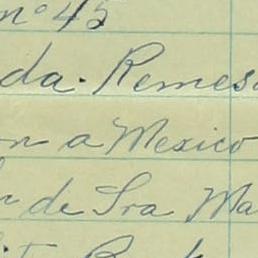 nº 45
da. Remes
on a Mexico
de Sra Ma